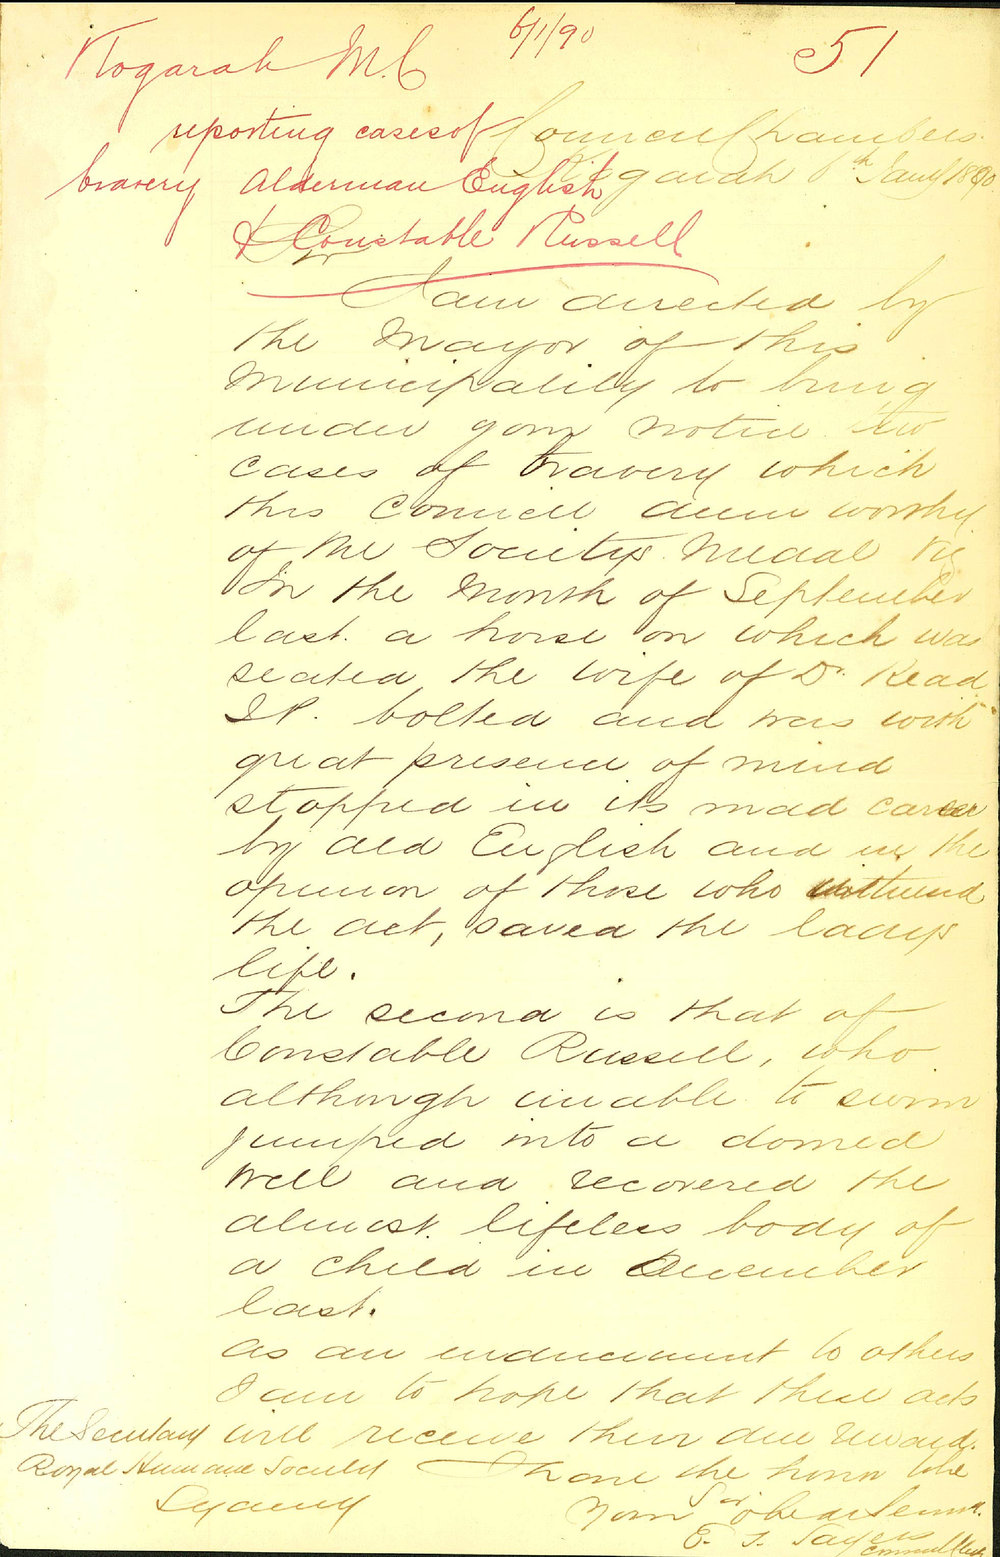 6/1/90
Kogarah M.C
251
reporting cases of
bravery Alderman English
& Constable Russell
Council Chambers
Kogarah 6th Jany 1890
Sir
I am directed by
the Mayor of this
Municipality to bring
under your notice two
cases of bravery which
this Council deem worthy
of the Societys Medal viz
In the Month of September
last. a horse on which was
seated the wife of Dr. Read
J.P. bolted and was with
great presence of mind
stopped in its mad career
by Ald English and in the
opinion of those who witnessed
the act, saved the ladys
life.
The second is that of
Constable Russell, who
although unable to swim
jumped into a domed
well and recovered the
almost lifeless body of
a child in December
last.
as an inducement to others
I am to hope that these acts
will receive their due reward.
I have the honor to be
Sir
Your obedt Servt.
E. S. Sayers
Council Clerk
The Secretary
Royal Humane Society
Sydney